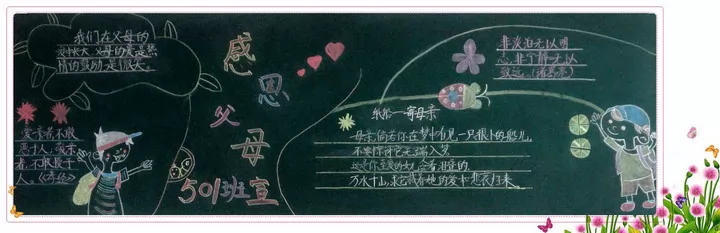 我们在父母的
爱中长大.父母的爱是热
情的鼓励.是很大。
感
恩
父
母
501班宣
爱亲者,不敢
恶于人,敬亲
者,不敢慢于
人。《孝经》
非淡泊无以明
志,非宁静无以
致远。(诸葛亮)
纸船——寄母亲
母亲,倘若你在梦中看见一只很小的船儿,
不要惊讶它无端入梦
这是你至爱的女儿含着泪叠的
万水千山,求它载着她的爱和悲哀归来